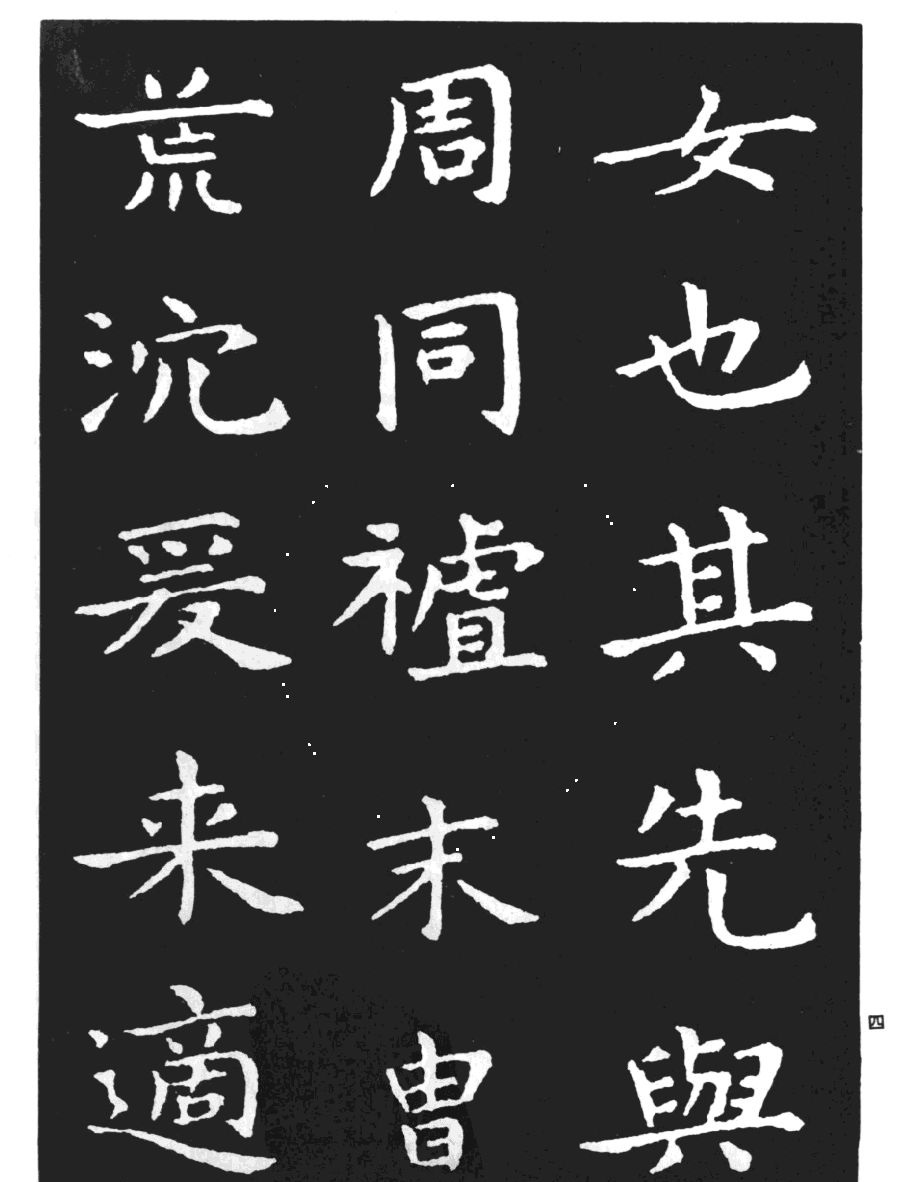 女也其先與
周同末胄
荒沉爰来適
四